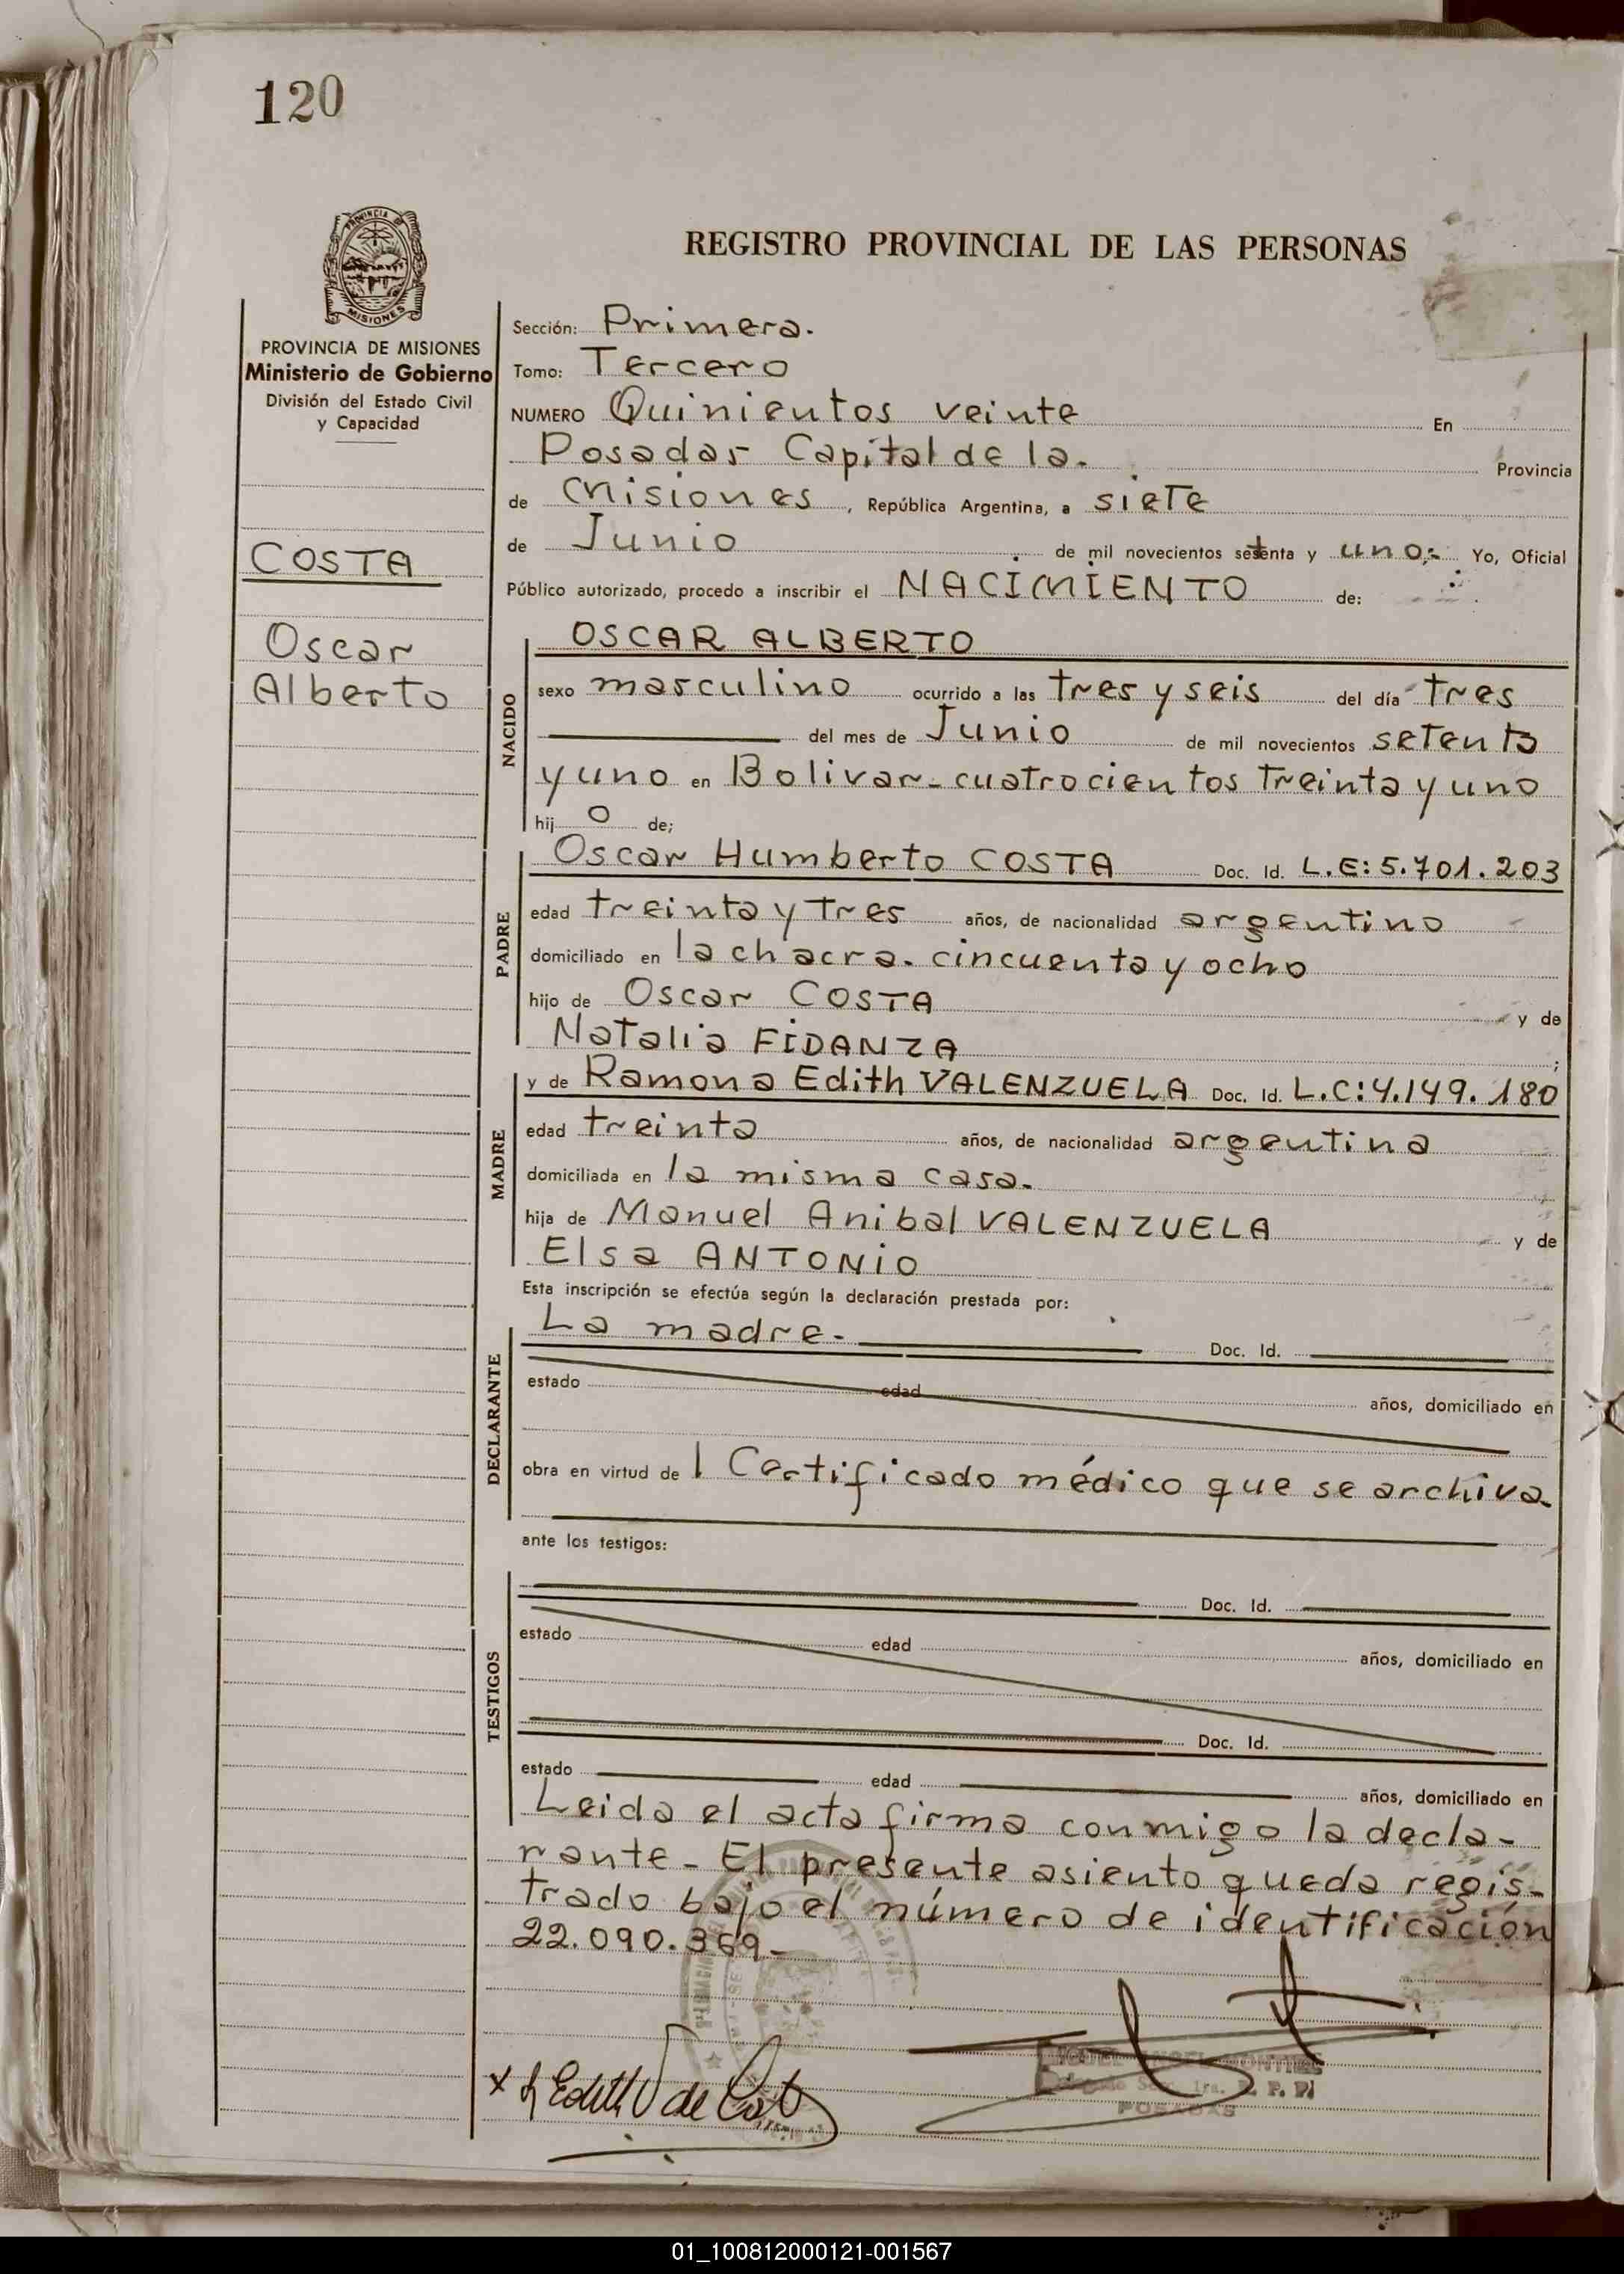 120
PROVINCIA DE
MISIONES
PROVINCIA DE MISIONES
Ministerio de Gobierno
División del Estado Civil
y Capacidad
COSTA
Oscar
Alberto
REGISTRO PROVINCIAL DE LAS PERSONAS
Sección: Primera.
Tomo: Tercero
NUMERO Quinientos veinte En
Posadas Capital de la. Provincia
de Misiones, República Argentina, a siete
de Junio de mil novecientos setenta y uno.- Yo, Oficial
Público autorizado, procedo a inscribir el NACIMIENTO de:
NACIDO
OSCAR ALBERTO
sexo masculino ocurrido a las tres y seis del día tres
del mes de Junio de mil novecientos setenta
y uno en Bolivar-cuatrocientos treinta y uno
hij o de;
PADRE
Oscar Humberto COSTA Doc. Id. L.E:5.701.203
edad treinta y tres años, de nacionalidad argentino
domiciliado en la chacra. cincuenta y ocho
hijo de Oscar COSTA y de
Natalia FIDANZA ;
MADRE
y de Ramona Edith VALENZUELA Doc. Id. L.C:4.149.180
edad treinta años, de nacionalidad argentina
domiciliada en la misma casa.
hija de Manuel Anibal VALENZUELA y de
Elsa ANTONIO
Esta inscripción se efectúa según la declaración prestada por:
DECLARANTE
La madre.- Doc. Id.
estado edad años, domiciliado en
obra en virtud de l Certificado médico que se archiva.
ante los testigos:
TESTIGOS
Doc. Id.
estado edad años, domiciliado en
Doc. Id.
estado edad años, domiciliado en
Leida el acta firma conmigo la decla-
rante-El presente asiento queda regis-
trado bajo el número de identificación
22.090.369-
x Edith V de
POSADAS
01_100812000121-001567